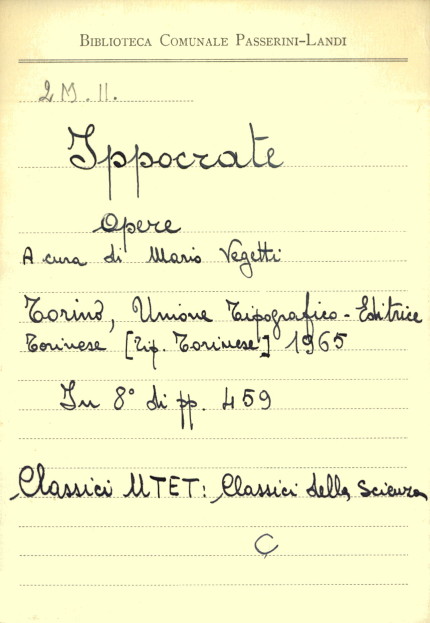 BIBLIOTECA COMUNALE PASSERINI-LANDI
2 M. II.
Ippocrate
Opere
A cura di Mario Vegetti
Torino, Unione Tipografico-Editrice
Torinese [Tip. Torinese] 1965
In 8° di pp. 459
Classici UTET: Classici della Scienza
C